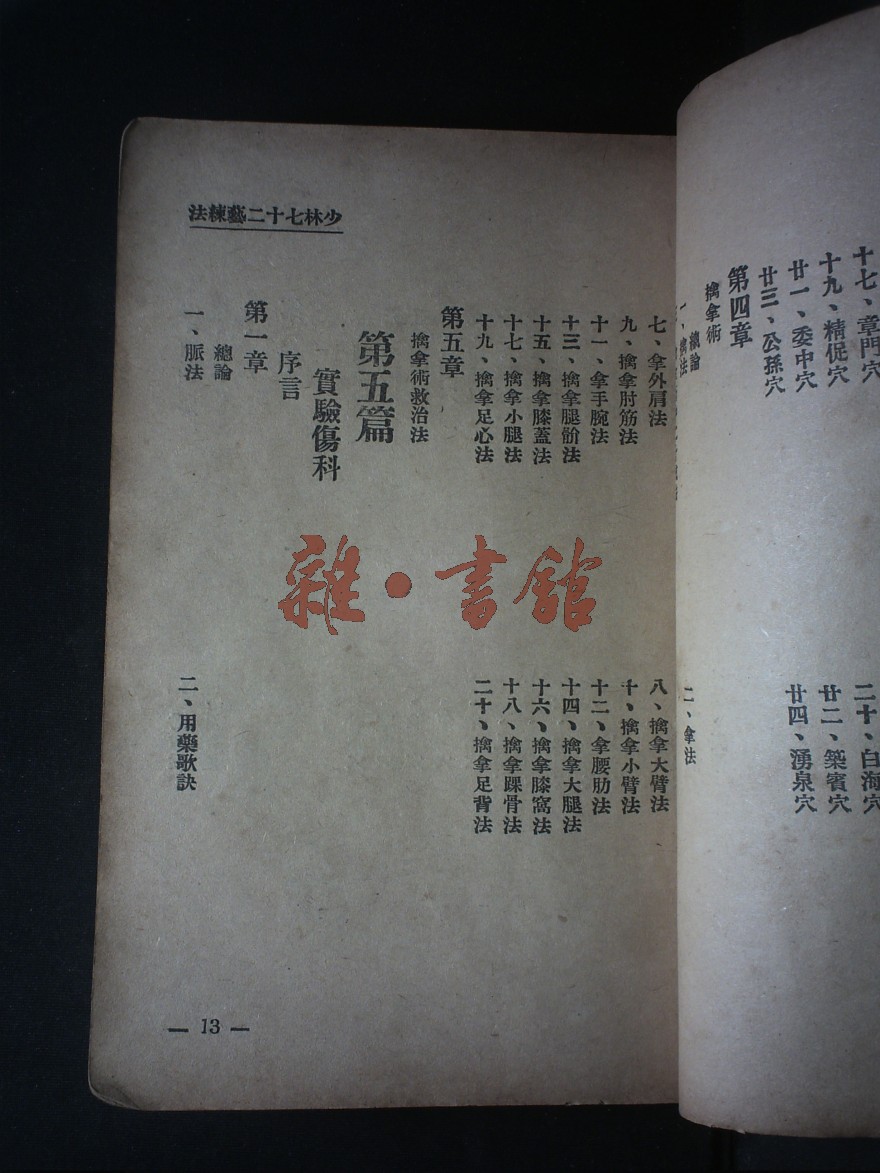 十七、章門穴
二十、白海穴
十九、精促穴
廿二、築賓穴
廿一、委中穴
廿四、湧泉穴
廿三、公孫穴
第四章
擒拿術
總論
一、擒法
二、拿法
七、拿外肩法
八、擒拿大臂法
九、擒拿肘筋法
十、擒拿小臂法
十一、拿手腕法
十二、拿腰肋法
十三、擒拿腿骱法
十四、擒拿大腿法
十五、擒拿膝蓋法
十六、擒拿膝窩法
十七、擒拿小腿法
十八、擒拿踝骨法
十九、擒拿足心法
二十、擒拿足背法
第五章
擒拿術救治法
第五篇
實驗傷科
序言
第一章
總論
一、脈法
二、用藥歌訣
少林七十二藝練法
— 13 —
雜·書館